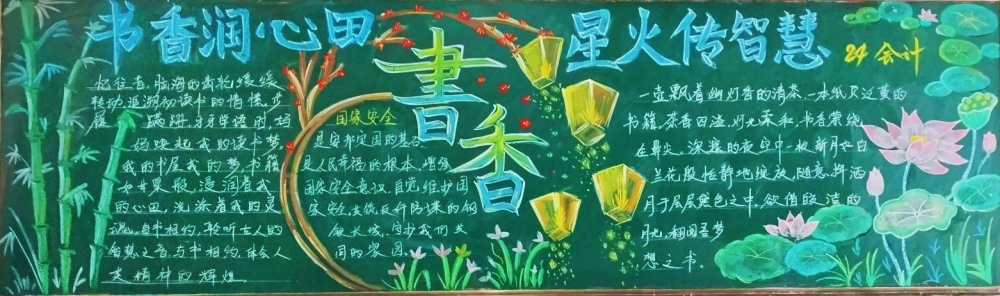 书香润心田
星火传智慧
24会计
書香
忆往昔,脑海的齿轮缓缓
转动追溯初读书的情怀,步
履蹒跚,牙牙学语时妈
妈唤起我的读书梦
我的书屋我的梦,书籍
如甘果般,浸润着我
的心田,洗涤着我的灵
魂,与书相约,聆听古人的
智慧之音,与书相约,体会人
类精神的辉煌
国家安全
是安邦定国的基石
是人民幸福的根本,增强
国家安全意识,自觉维护国
家安全
的钢
铁长城,守护我们共
同的家园
一壶飘着幽幽香的清茶一本纸页泛黄的
书籍,茶香四溢,灯光柔和,书香萦绕
在鼻尖,深邃的夜空中一枚新月如白
兰花般恬静地绽放,随意挥洒
月于层层黑色之中,欲借皎洁的
月光
梦
想之书。